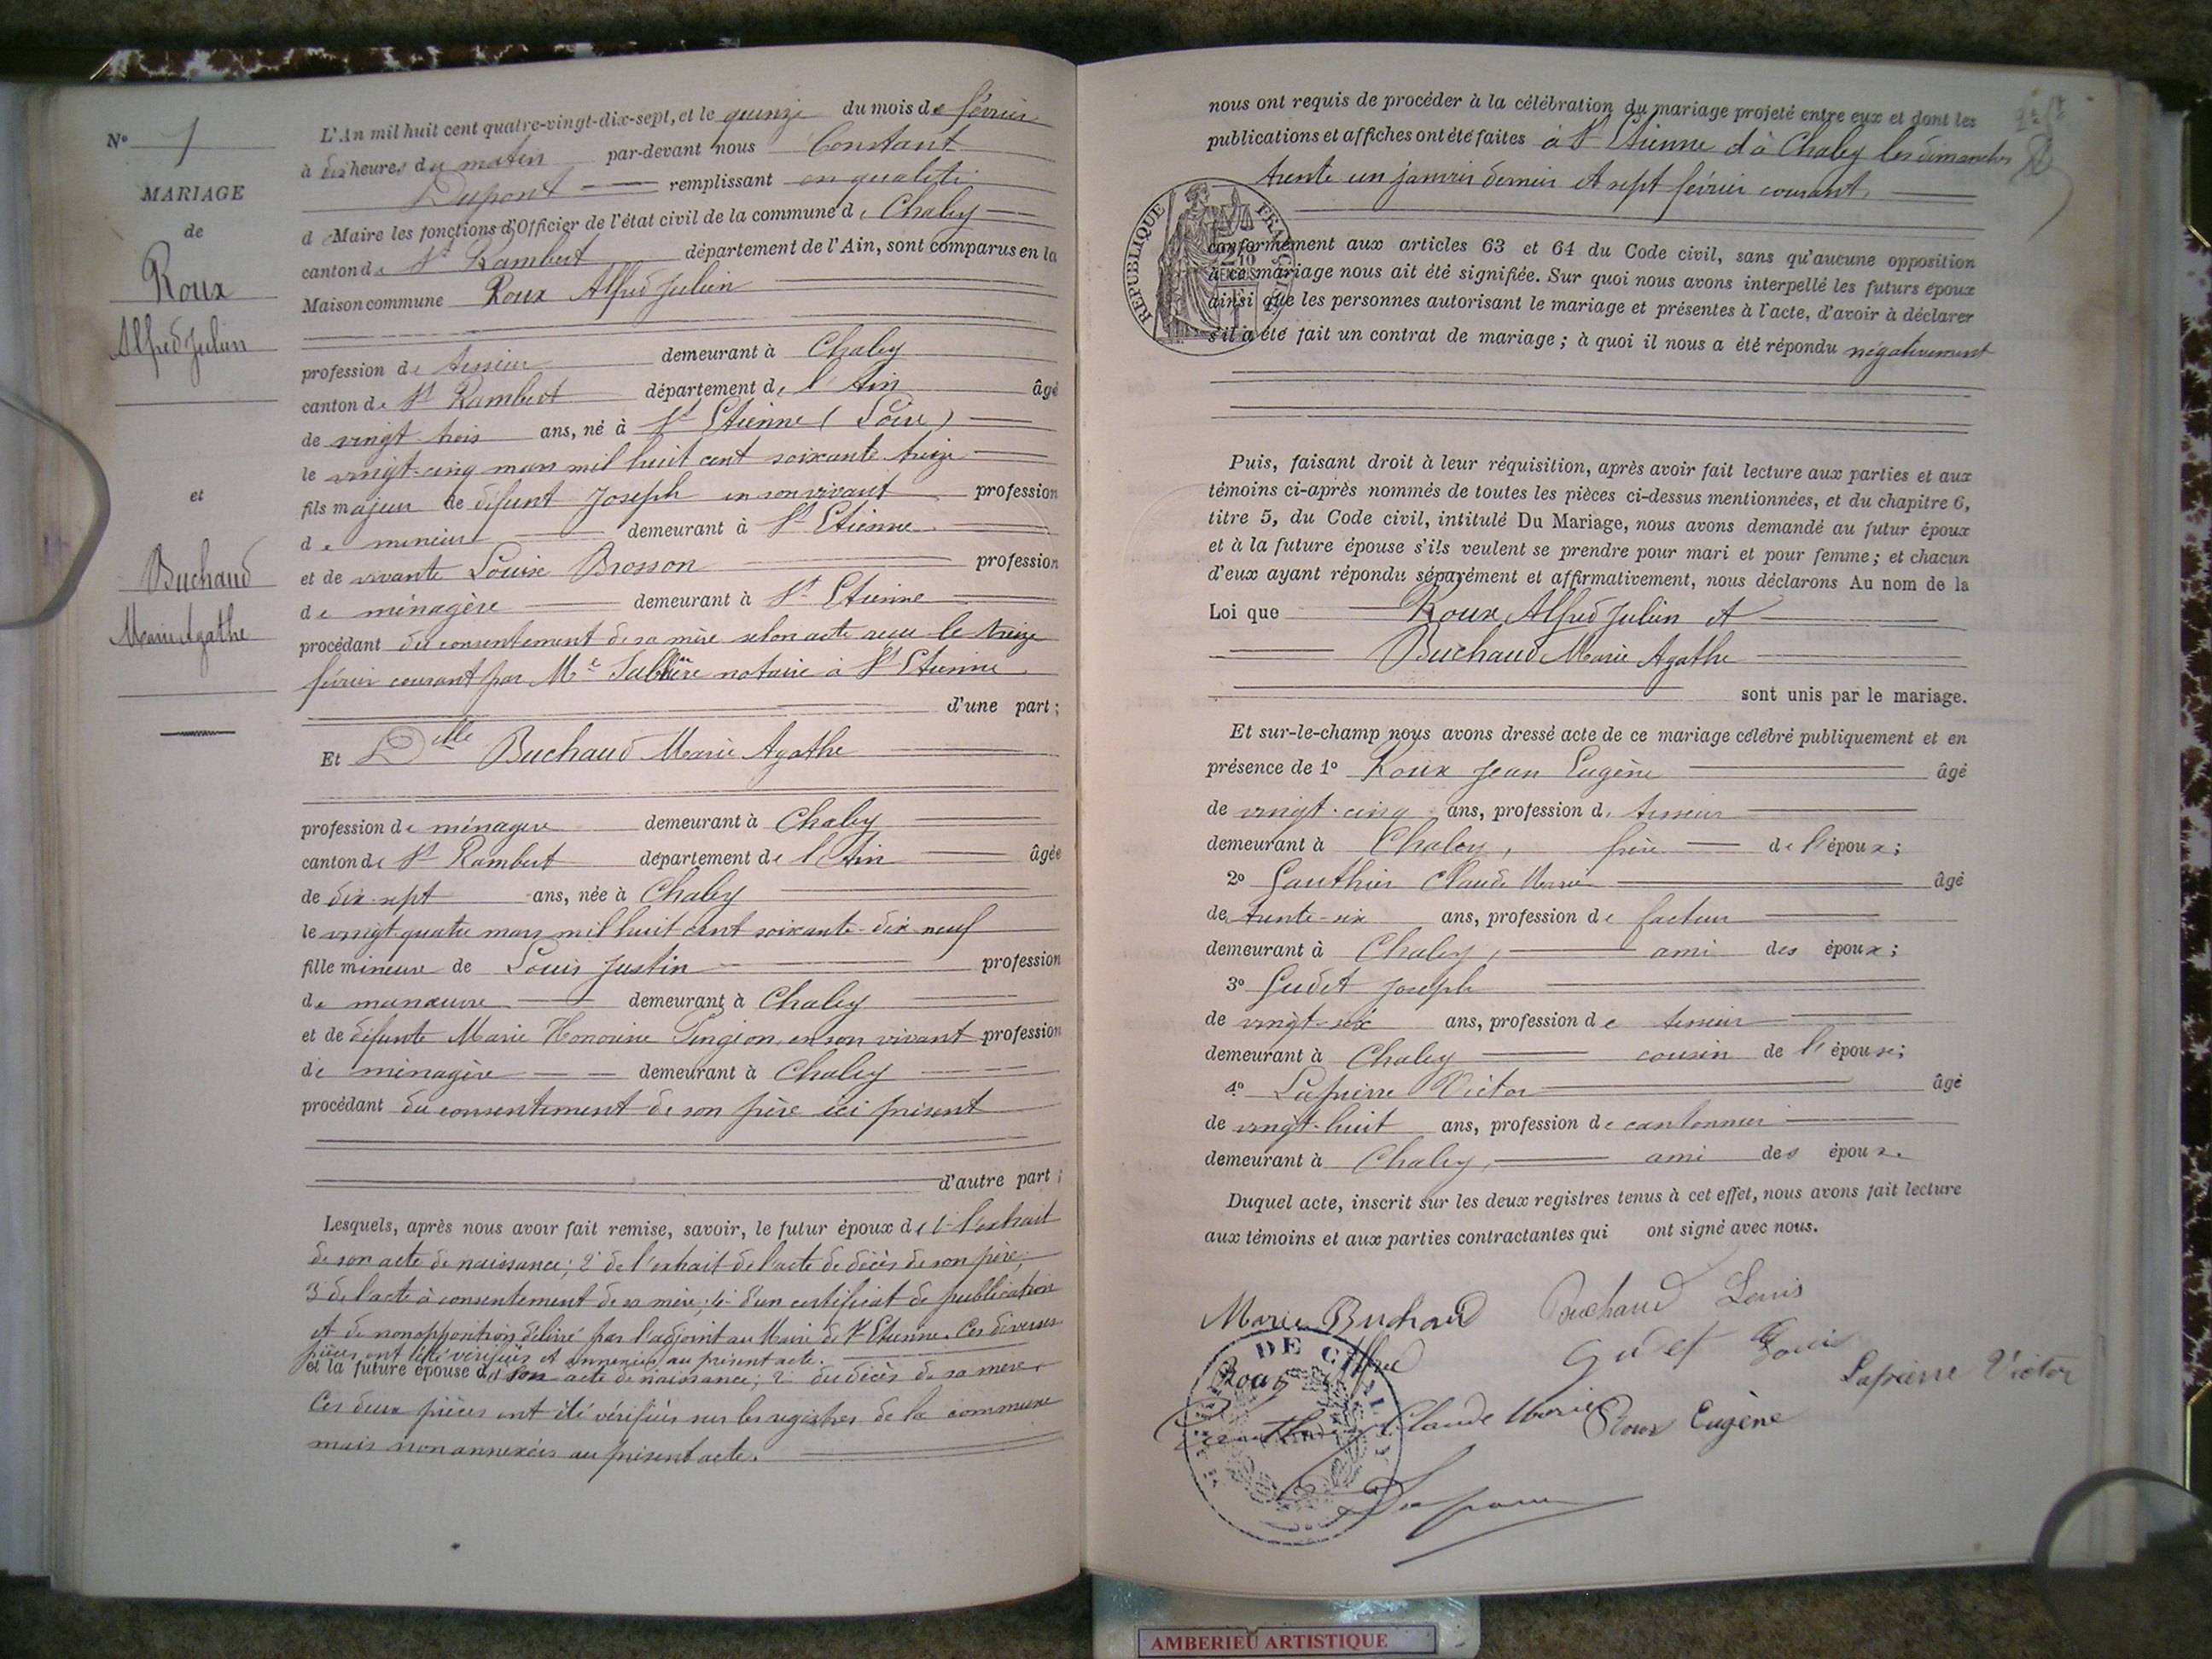 N° 1
MARIAGE
de
Roux
Alfred Julien
et
Buchaud
Marie Agathe
L'An mil huit cent quatre-vingt-dix-sept, et le quinze du mois de février
à dix heures du matin par-devant nous Constant
Dupont remplissant en qualité
de Maire les fonctions d'Officier de l'état civil de la commune de Chaley
canton de St Rambert département de l'Ain, sont comparus en la
Maison commune Roux Alfred Julien
profession de tisseur demeurant à Chaley
canton de St Rambert département de l'Ain âgé
de vingt trois ans, né à St Etienne (Loire)
le vingt-cinq mars mil huit cent soixante treize
fils majeur de défunt Joseph en son vivant profession
de mineur demeurant à St Etienne
et de vivante Louise Brosson profession
de ménagère demeurant à St Etienne
procédant du consentement de sa mère selon acte reçu le treize
février courant par Me notaire à St Etienne
d'une part ;
Et Delle Buchaud Marie Agathe
profession de ménagère demeurant à Chaley
canton de St Rambert département de l'Ain âgée
de dix-sept ans, née à Chaley
le vingt quatre mars mil huit cent soixante-dix-neuf
fille mineure de Louis Justin profession
de manœuvre demeurant à Chaley
et de défunte Marie Honorine en son vivant profession
de ménagère demeurant à Chaley
procédant du consentement de son père ici présent
d'autre part ;
Lesquels, après nous avoir fait remise, savoir, le futur époux de 1° l'extrait
de son acte de naissance ; 2° de l'extrait de l'acte de décès de son père ;
3° de l'acte à consentement de sa mère ; 4° d'un certificat de publication
et de non opposition délivré par l'adjoint au Maire de St Etienne. Ces diverses
pièces ont été vérifiées et annexées au présent acte.
et la future épouse de son acte de naissance ; 2° du décès de sa mère.
Ces deux pièces ont été vérifiées sur les registres de la commune
mais non annexées au présent acte.
nous ont requis de procéder à la célébration du mariage projeté entre eux et dont les
publications et affiches ont été faites à St Etienne et à Chaley les dimanches
trente un janvier dernier et sept février courant
REPUBLIQUE FRANÇAISE
conformément aux articles 63 et 64 du Code civil, sans qu'aucune opposition
à ce mariage nous ait été signifiée. Sur quoi nous avons interpellé les futurs époux
ainsi que les personnes autorisant le mariage et présentes à l'acte, d'avoir à déclarer
s'il a été fait un contrat de mariage ; à quoi il nous a été répondu négativement
Puis, faisant droit à leur réquisition, après avoir fait lecture aux parties et aux
témoins ci-après nommés de toutes les pièces ci-dessus mentionnées, et du chapitre 6,
titre 5, du Code civil, intitulé Du Mariage, nous avons demandé au futur époux
et à la future épouse s'ils veulent se prendre pour mari et pour femme ; et chacun
d'eux ayant répondu séparément et affirmativement, nous déclarons Au nom de la
Loi que Roux Alfred Julien et
Buchaud Marie Agathe
sont unis par le mariage.
Et sur-le-champ nous avons dressé acte de ce mariage célébré publiquement et en
présence de 1° Roux Jean Eugène âgé
de vingt-cinq ans, profession de tisseur
demeurant à Chaley, frère de l'époux ;
2° Gauthier Claude Marie âgé
de trente-six ans, profession de facteur
demeurant à Chaley, ami des époux ;
3° Gudet Joseph
de vingt-six ans, profession de tisseur
demeurant à Chaley cousin de l'épouse ;
4° Lapierre Victor âgé
de vingt-huit ans, profession de cantonnier
demeurant à Chaley, ami des époux.
Duquel acte, inscrit sur les deux registres tenus à cet effet, nous avons fait lecture
aux témoins et aux parties contractantes qui ont signé avec nous.
Marie Buchaud Buchaud Louis
Roux Alfred Gudet Lapierre Victor
Claude Marie Roux Eugène
DE CHALEY
Dupont
AMBERIEU ARTISTIQUE